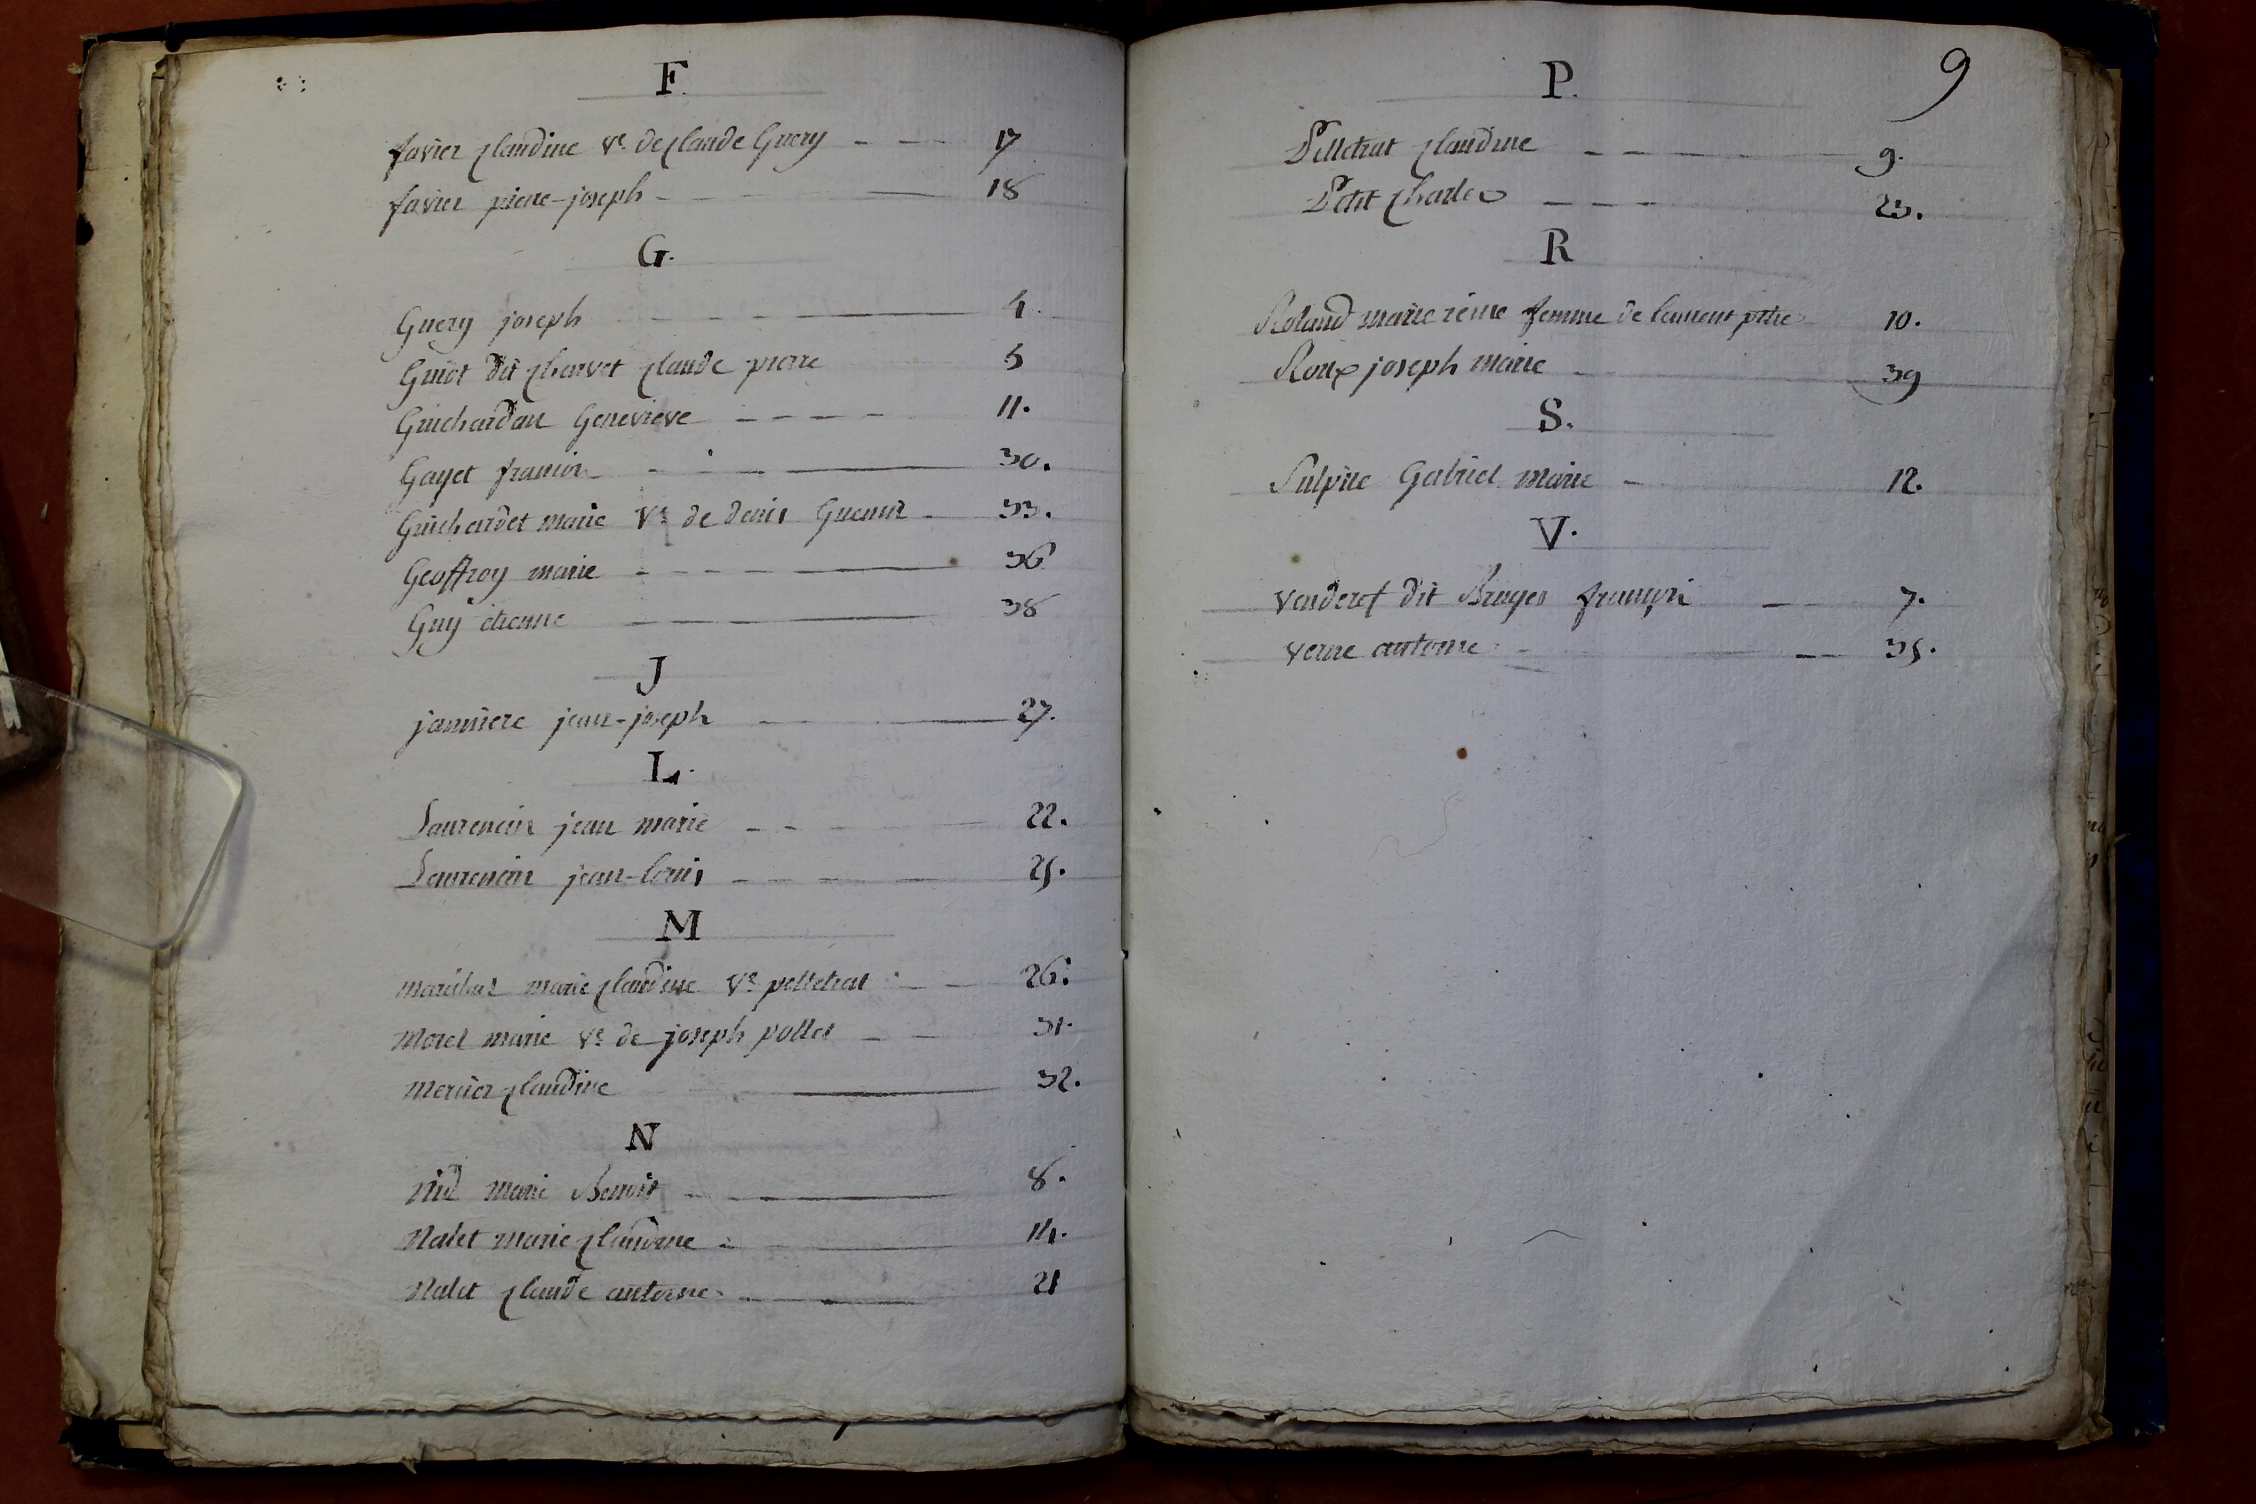 F.
favier claudine Ve. de claude Guery 17
favier pierre-joseph 18
G.
Guery joseph 4.
Guiot dit charvet claude pierre 5
Guichardan Genevieve 11.
Gayet francois 30.
Guichardet marie Ve. de denis Guenin 33.
Geoffroy marie 36
Guy etienne 38
J
janniere jean-joseph 27.
L.
Laurencin jean marie 22.
Laurencin jean-louis 25.
M
marechal marie claudine Ve. pelletrat 26.
Morel marie Ve. de joseph pollet 31.
mercier claudine 32.
N
Nid marie Benoit 8.
Nalet marie claudine 14.
Nalet claude antoine 21
9
P.
Pelletrat claudine 9.
Petit charles 23.
R
Roland marie reine femme de laurent 10.
Roux joseph marie 39
S.
Sulpice Gabriel marie 12.
V.
Venderest dit Bruges françois 7.
verne antoine 35.